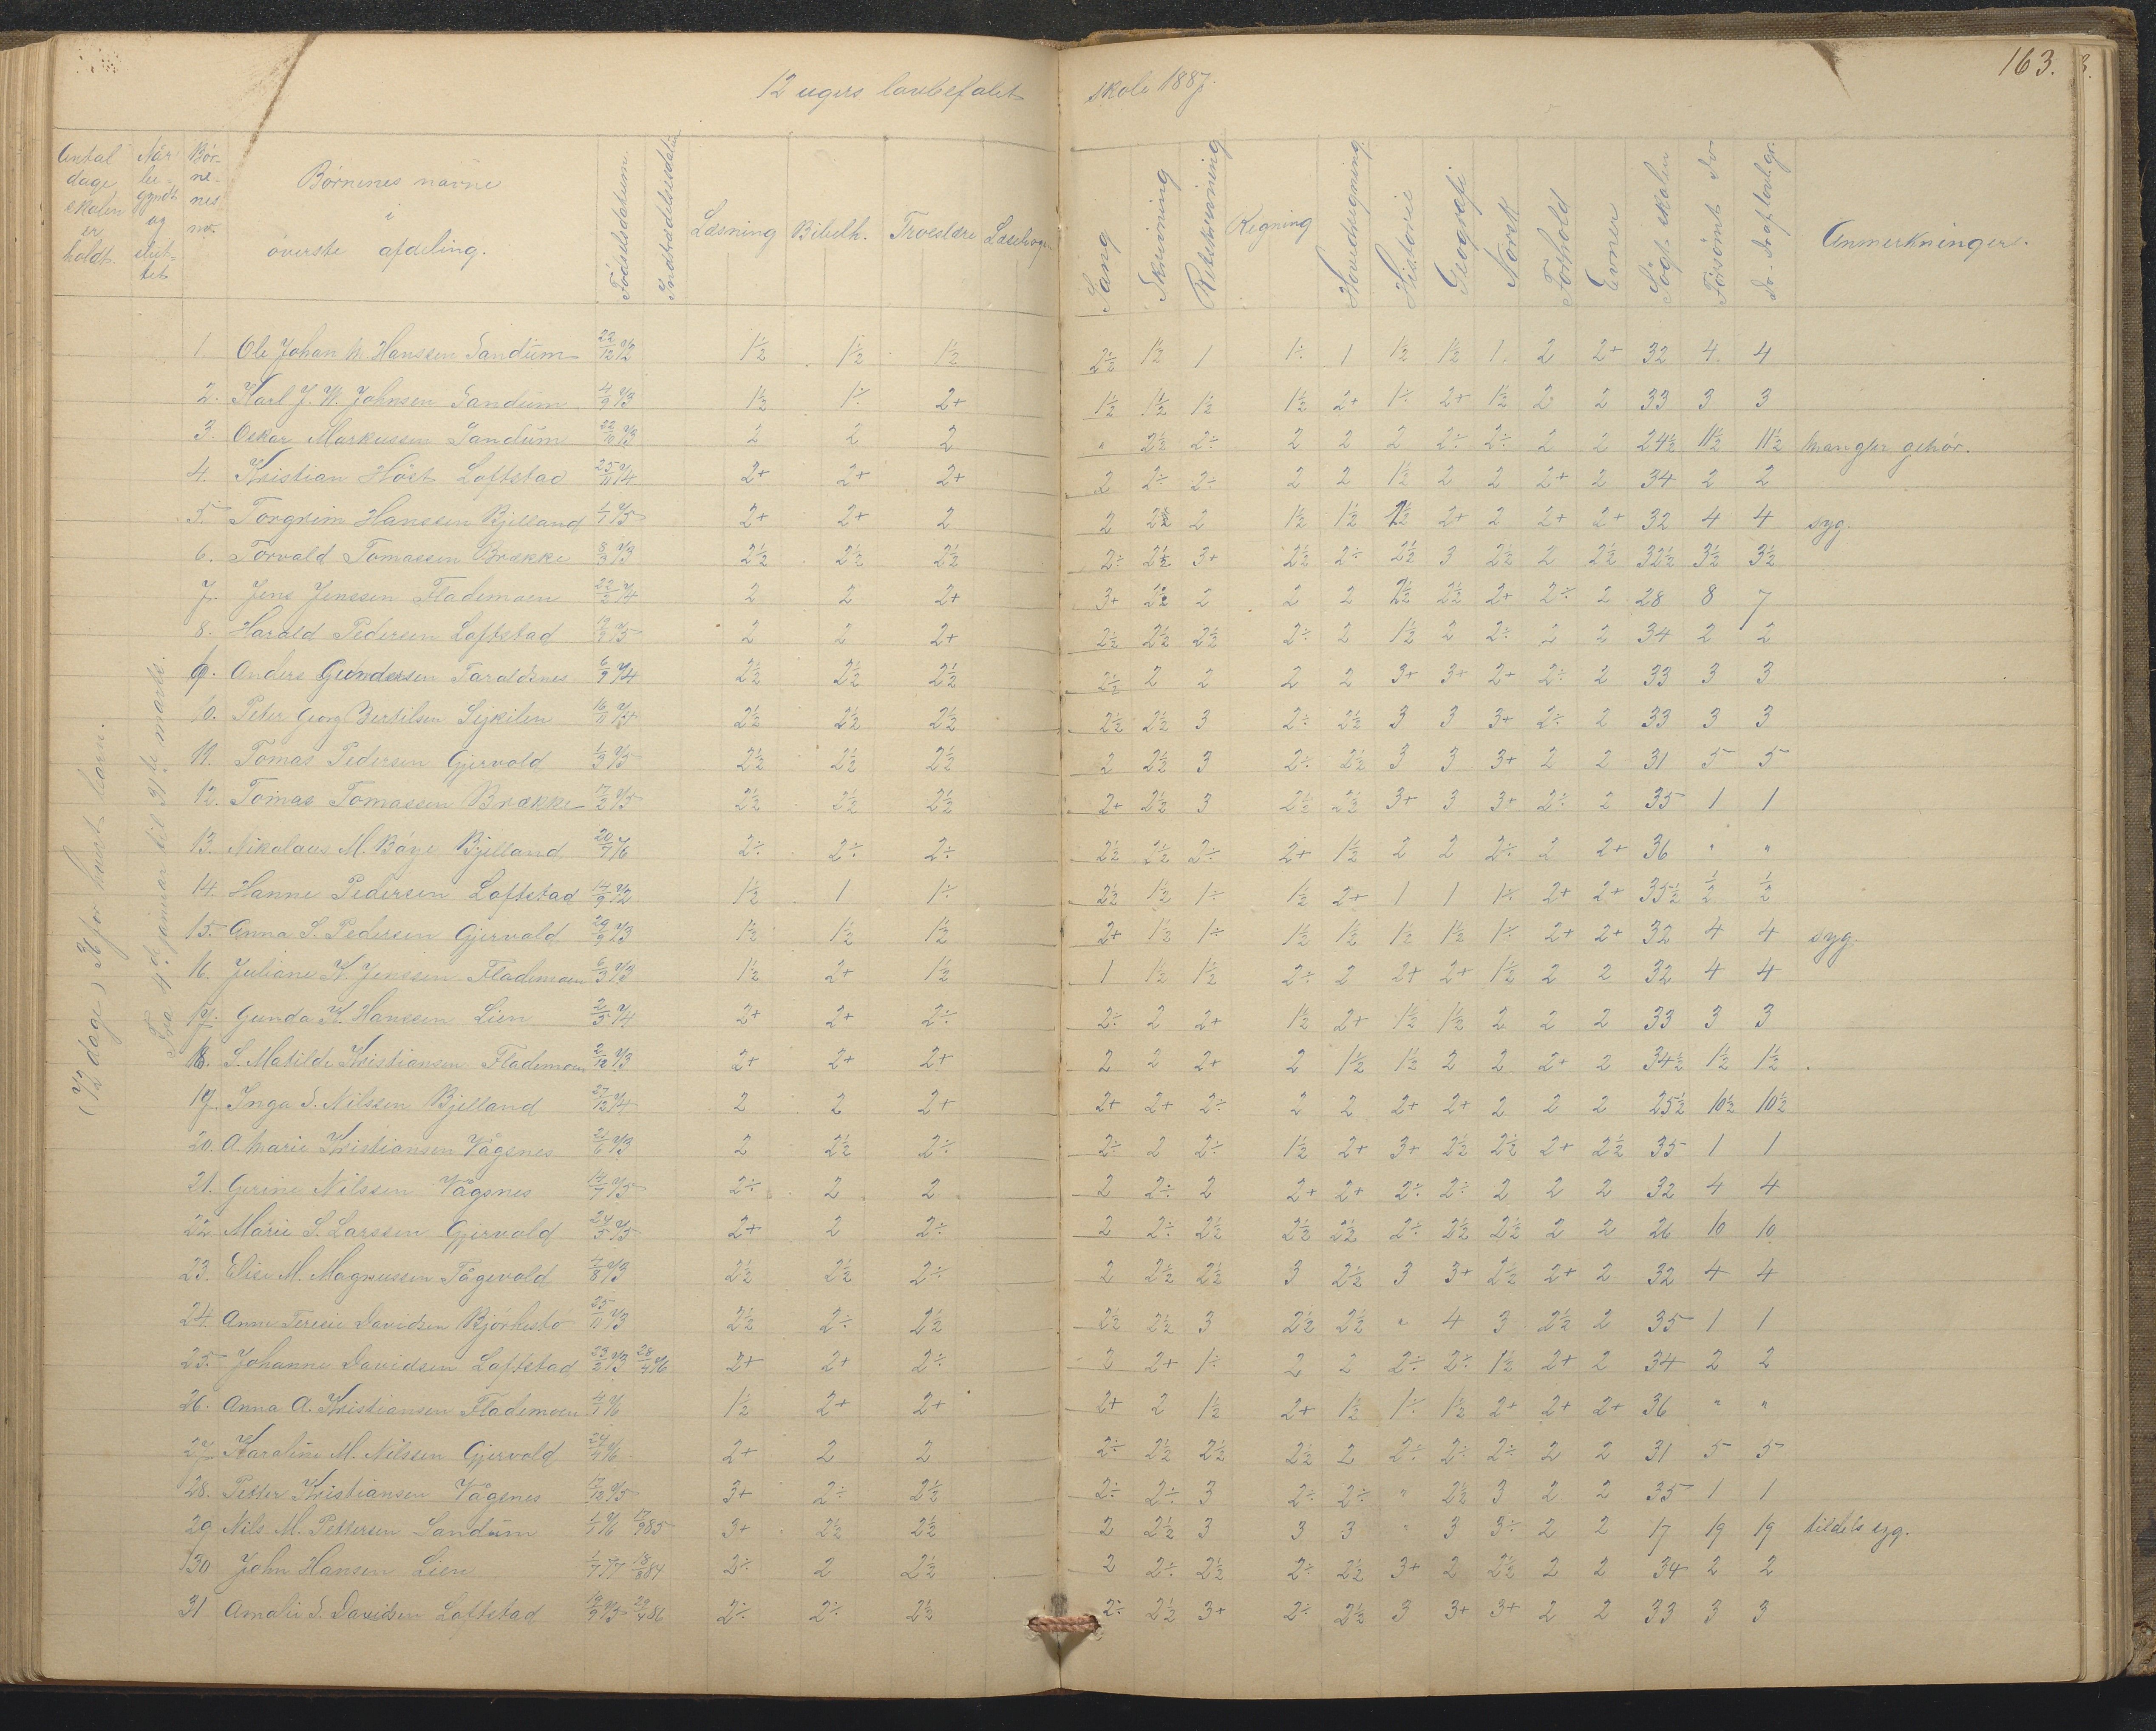 163.
12 ugers lovbefalet skole 1887.
Antal dage skolen er holdt. | När be-gyndt og slut-tet | Bör-ne-nes no. | Börnenes navne i överste afdeling. | Födselsdatum. | Indtrædelsesdatum | Læsning | Bibelh. | Troeslære | Læsebogen | Sang | Skrivning | Retskrivning | Regning | Hovedregning | Historie | Geografi | Norsk | Forhold | Evner | Sögt skolen | Forsömt do | do. do af lovl. gr. | Anmerkninger.
(72 dage) 36 for hvert barn.
Fra 4de januar til 31te marts.
1. Ole Johan M. Hanssen Sandum 22/12 72 1½ 1½ 1½ 2½ 1½ 1 1÷ 1 1½ 1½ 1. 2 2+ 32 4. 4
2. Karl J. W. Johnsen Sandum 4/9 73 1½ 1÷ 2+ 1½ 1½ 1½ 1½ 2+ 1÷ 2+ 1½ 2 2 33 3 3
3. Oskar Markussen Sandum 22/10 73 2 2 2 " 2½ 2÷ 2 2 2 2÷ 2÷ 2 2 24½ 11½ 11½ mangler gehör.
4. Kristian Höst Loftstad 25/11 74 2+ 2+ 2+ 2 2÷ 2÷ 2 2 1½ 2 2 2+ 2 34 2 2
5. Torgrim Hanssen Bjelland 1/1 75 2+ 2+ 2 2 2½ 2 1½ 1½ 1½ 2+ 2 2+ 2+ 32 4 4 syg.
6. Torvald Tomassen Brække 8/3 73 2½ 2½ 2½ 2÷ 2½ 3+ 2½ 2÷ 2½ 3 2½ 2 2½ 32½ 3½ 3½
7. Jens Jenssen Flademoen 22/2 74 2 2 2+ 3+ 2½ 2 2 2 2½ 2½ 2+ 2÷ 2 28 8 7
8. Harald Pedersen Loftstad 19/9 75 2 2 2+ 2½ 2½ 2½ 2÷ 2 1½ 2 2÷ 2 2 34 2 2
9. Anders Gundersen Taraldsnes 6/9 74 2½ 2½ 2½ 2½ 2 2 2 2 3+ 3+ 2+ 2÷ 2 33 3 3
10. Peter Georg Bertilsen Sykilen 16/11 75 2½ 2½ 2½ 2½ 2½ 3 2÷ 2½ 3 3 3+ 2÷ 2 33 3 3
11. Tomas Pedersen Gjervold 1/3 75 2½ 2½ 2½ 2 2½ 3 2÷ 2½ 3 3 3+ 2 2 31 5 5
12. Tomas Tomassen Brække 17/2 75 2½ 2½ 2½ 2+ 2½ 3 2½ 2½ 3+ 3 3+ 2÷ 2 35 1 1
13. Nikolaus M. Böye Bjelland 20/7 76 2÷ 2÷ 2÷ 2½ 2½ 2÷ 2+ 1½ 2 2 2÷ 2 2+ 36 " "
14. Hanne Pedersen Loftstad 14/9 72 1½ 1 1÷ 2½ 1½ 1÷ 1½ 2+ 1 1 1÷ 2+ 2+ 35½ ½ ½
15. Anna S. Pedersen Gjervold 29/9 73 1½ 1½ 1½ 2+ 1½ 1÷ 1½ 1½ 1½ 1½ 1÷ 2+ 2+ 32 4 4 syg.
16. Juliane K. Jenssen Flademoen 6/3 73 1½ 2+ 1½ 1 1½ 1½ 2÷ 2 2+ 2+ 1½ 2 2 32 4 4
17. Gunda K. Hanssen Lien 2/5 74 2+ 2+ 2÷ 2÷ 2 2+ 1½ 2+ 1½ 1½ 2 2 2 33 3 3
18. S. Matilde Kristiansen Flademoen 2/12 73 2+ 2+ 2+ 2 2 2+ 2 1½ 1½ 2 2 2+ 2 34½ 1½ 1½
19. Inga S. Nilssen Bjelland 27/12 74 2 2 2+ 2+ 2+ 2÷ 2 2 2+ 2+ 2 2 2 25½ 10½ 10½
20. A. Marie Kristiansen Vågsnes 21/6 73 2 2½ 2÷ 2÷ 2 2÷ 1½ 2+ 3+ 2½ 2½ 2+ 2½ 35 1 1
21. Gerine Nilssen Vågsnes 14/7 75 2÷ 2 2 2 2÷ 2 2+ 2+ 2÷ 2÷ 2 2 2 32 4 4
22 Marie S. Larssen Gjervold 24/5 75 2+ 2 2÷ 2 2÷ 2½ 2½ 2½ 2÷ 2½ 2½ 2 2 26 10 10
23. Elise M. Magnussen Tågevold 4/8 73 2½ 2½ 2÷ 2 2½ 2½ 3 2½ 3 3+ 2½ 2+ 2 32 4 4
24. Anne Teresie Davidsen Björkestö 25/11 73 2½ 2÷ 2½ 2½ 2½ 3 2½ 2½ " 4 3 2½ 2 35 1 1
25. Johanne Davidsen Loftstad 23/2 73 28/4 76 2+ 2+ 2÷ 2 2+ 1÷ 2 2 2÷ 2÷ 1½ 2+ 2 34 2 2
26. Anna A. Kristiansen Flademoen 4/1 76 1½ 2+ 2+ 2+ 2 1½ 2+ 1½ 1÷ 1½ 2+ 2+ 2+ 36 " "
27 Karoline M. Nilssen Gjervold 24/4 76 2+ 2 2 2÷ 2½ 2½ 2½ 2 2÷ 2÷ 2÷ 2 2 31 5 5
28. Petter Kristiansen Vågsnes 17/12 75 3+ 2÷ 2½ 2÷ 2÷ 3 2÷ 2÷ " 2½ 3 2 2 35 1 1
29 Nils M. Pettersen Sandum 1/1 76 17/9 85 3+ 2½ 2½ 2 2½ 3 3 3 " 3 3÷ 2 2 17 19 19 tildels syg.
30 John Hansen Lien 1/7 77 18/8 84 2÷ 2 2½ 2 2÷ 2½ 2÷ 2½ 3+ 2 2½ 2 2 34 2 2
31 Amalie S. Davidsen Loftstad 19/9 75 29/4 86 2÷ 2÷ 2½ 2÷ 2½ 3+ 2÷ 2½ 3 3+ 3+ 2 2 33 3 3